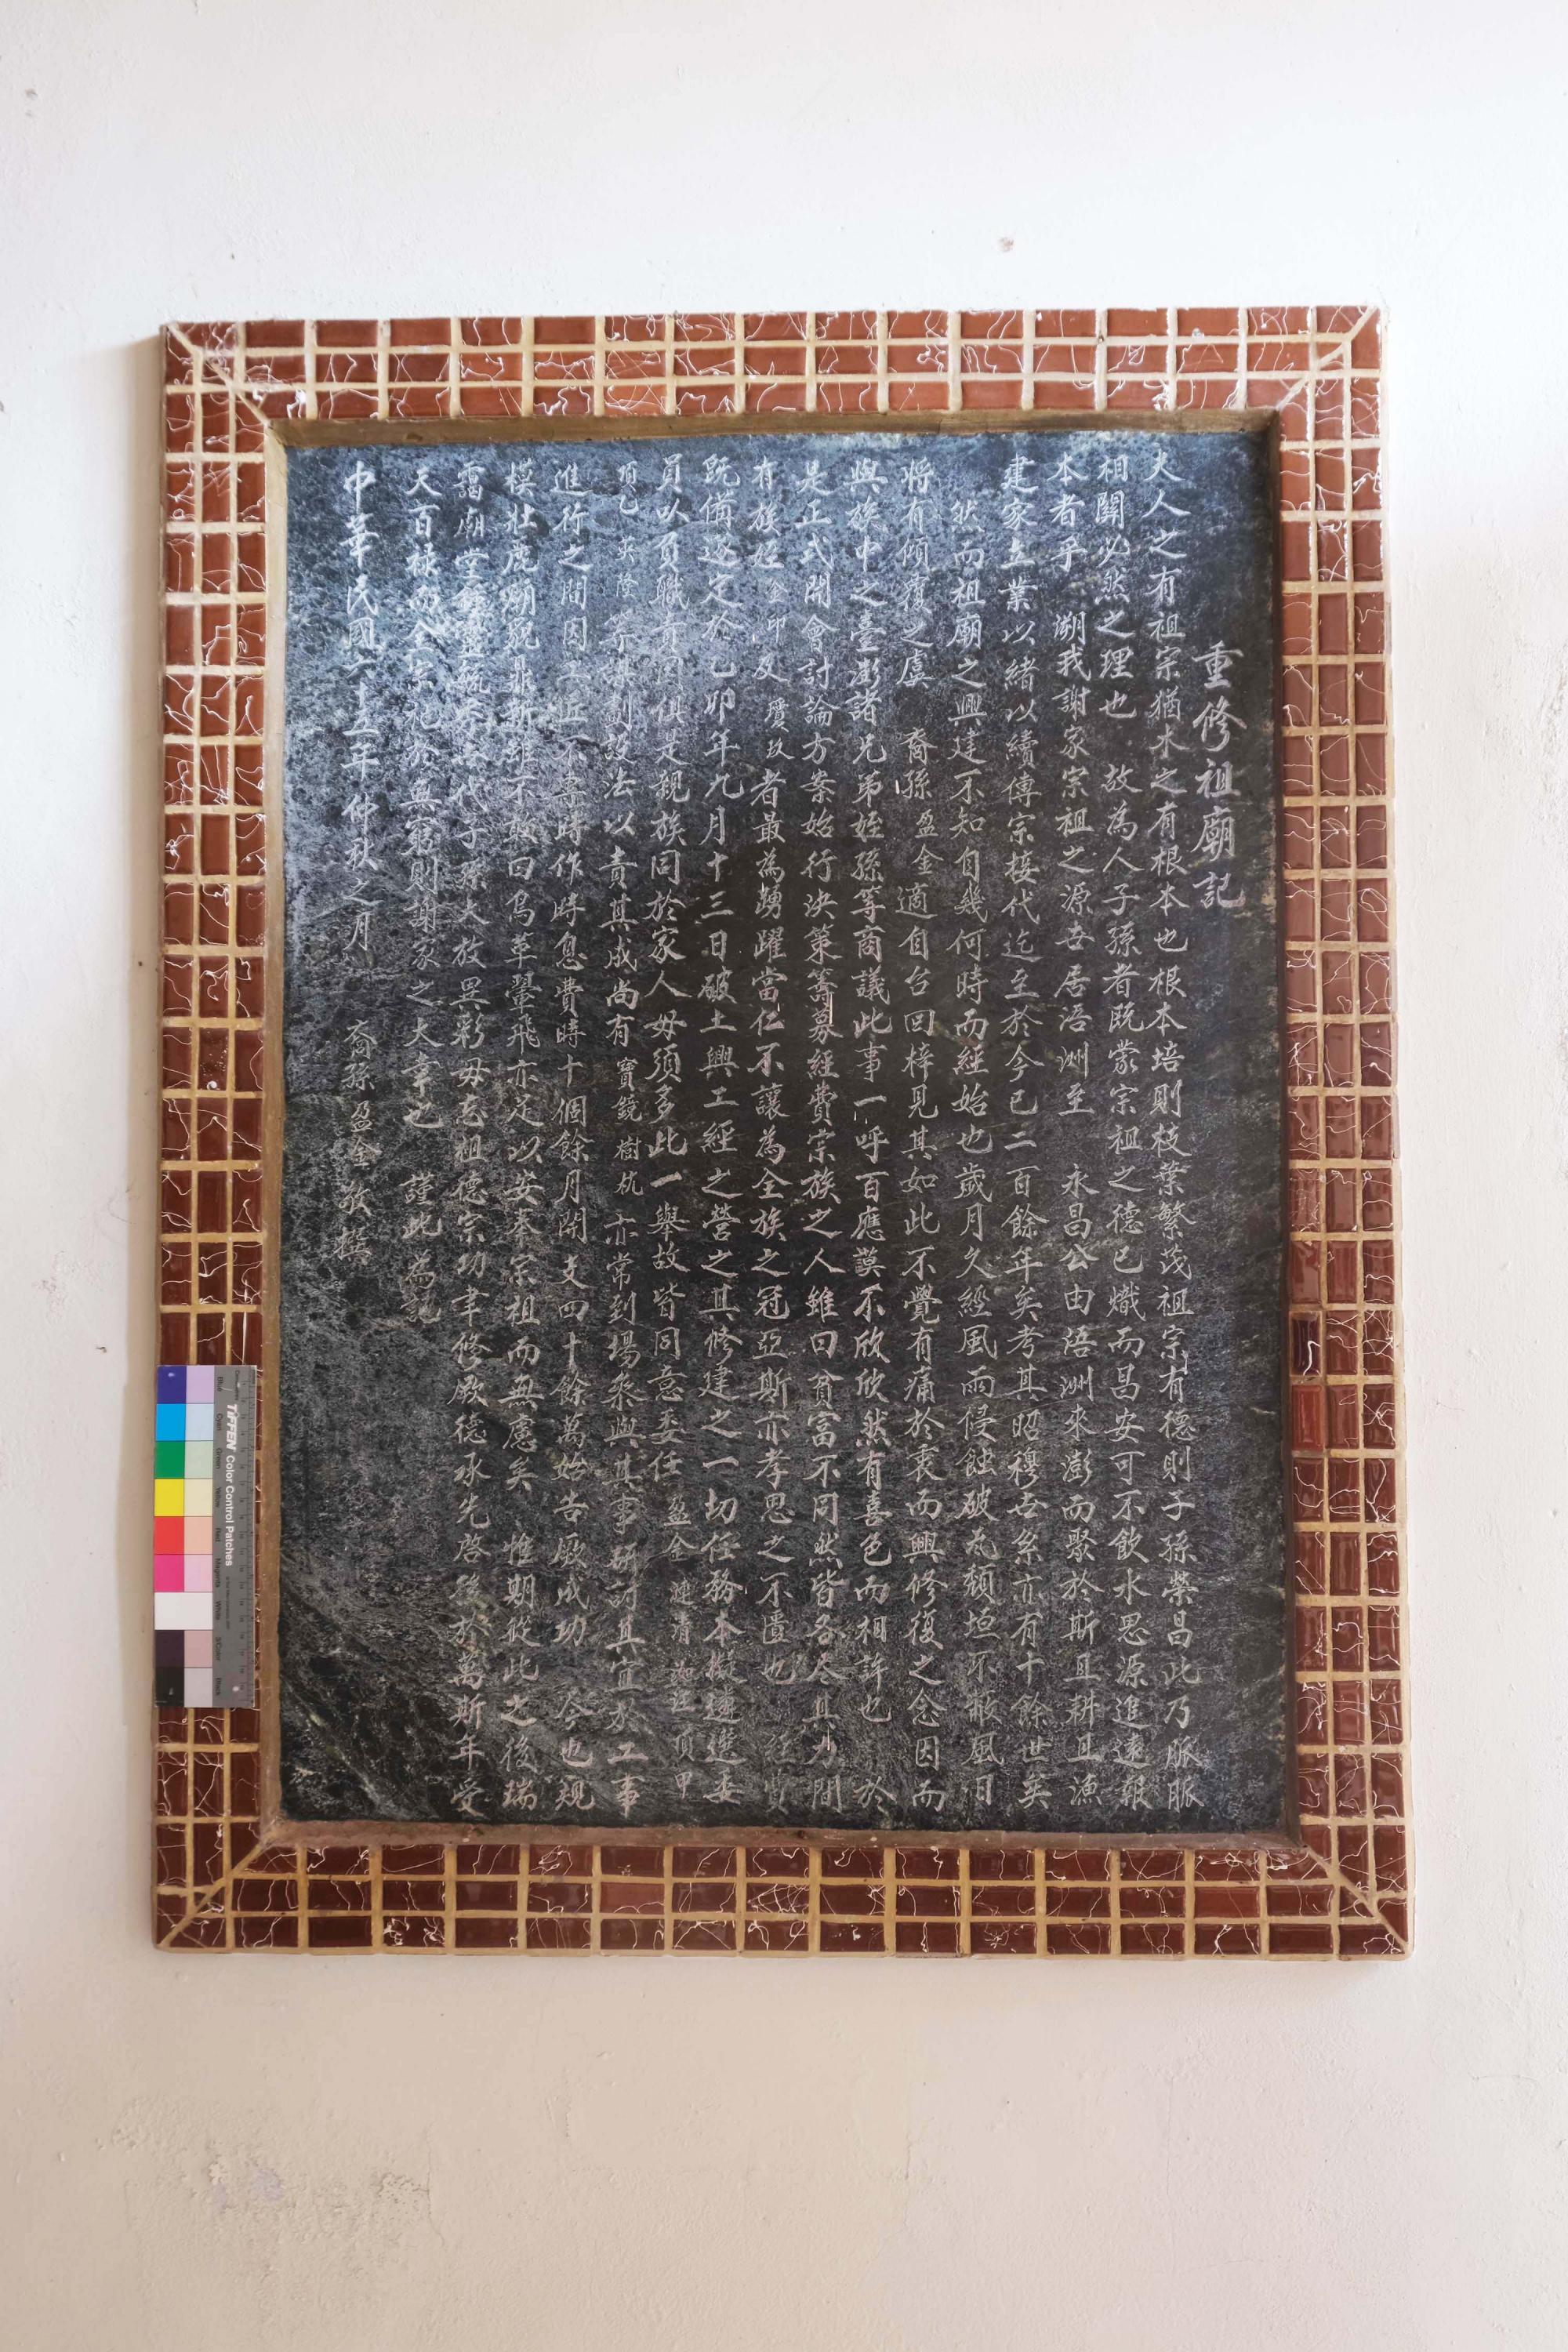 重修祖廟記
夫人之有祖宗猶木之有根本也根本培則枝葉繁茂祖宗有德則子孫榮昌此乃脈脈
相關必然之理也 故為人子孫者既蒙宗祖之德已熾而昌安可不飲水思源追遠報
本者乎 溯我謝家宗祖之源世居浯洲至 永昌公由浯洲來澎而聚於斯且耕且漁
建家立業以緒以續傳宗接代迄至於今已二百餘年矣考其昭穆世系亦有十餘世矣
然而祖廟之興建不知自幾何時而經始也歲月久經風雨侵蝕破瓦頹垣不敝風日
將有傾覆之虞 裔孫盈金適自台回梓見其如此不覺有痛於衷而興修復之念因而
與族中之臺澎諸兄弟姪孫等商議此事一呼百應莫不欣欣然有喜色而相許也 於
是正式開會討論方案始行決策籌募經費宗族之人雖曰貧富不同然皆各盡其力間
有族姪金印及 者最為踴躍當仁不讓為全族之冠亞斯亦孝思之不匱也 經費
既備遂定於乙卯年九月十三日破土興工經之營之其修建之一切任務本擬遴選委
員以負職責 俱文親族同於家人毋須多此一舉故皆同意委任盈金 清 頂甲
頂乙 隆 劃設法以責其成尚有寶鏡樹枕亦常到場參與其事研討其宜於工事
進行之間因工匠不 時作時息費時十個餘月開支四十餘萬始告厥成功 今也規
模壯麗廟貌鼎新雖不敢曰鳥革翬飛亦足以安奉宗祖而無慮矣 惟期從此之後瑞
靄廟堂 代子孫大放異彩毋忘祖德宗功聿修厥德承先啓後於萬斯年受
天百祿而 祀於無窮則謝家之大幸也 謹此為記
中華民國六十五年仲秋之月 裔孫盈金敬撰
TIFFEN Color Control Patches
Blue Cyan Green Yellow Red Magenta White 3/Color Black